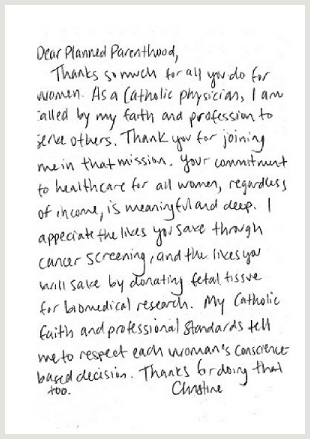 Dear Planned Parenthood,
Thanks so much for all you do for
women. As a Catholic physician, I am
alled by my faith and profession to
serve others. Thank you for joining
me in that mission. Your commitment
to healthcare for all women, regardless
of income, is meaningful and deep. I
appeciate the lives you save through
cancer screening, and the lives you
will save by donating fetal tissue
for biomedical research. My Catholic
faith and professional standards tell
me to respect each woman's conscience-
based decision. Thanks for doing that
too. Christine